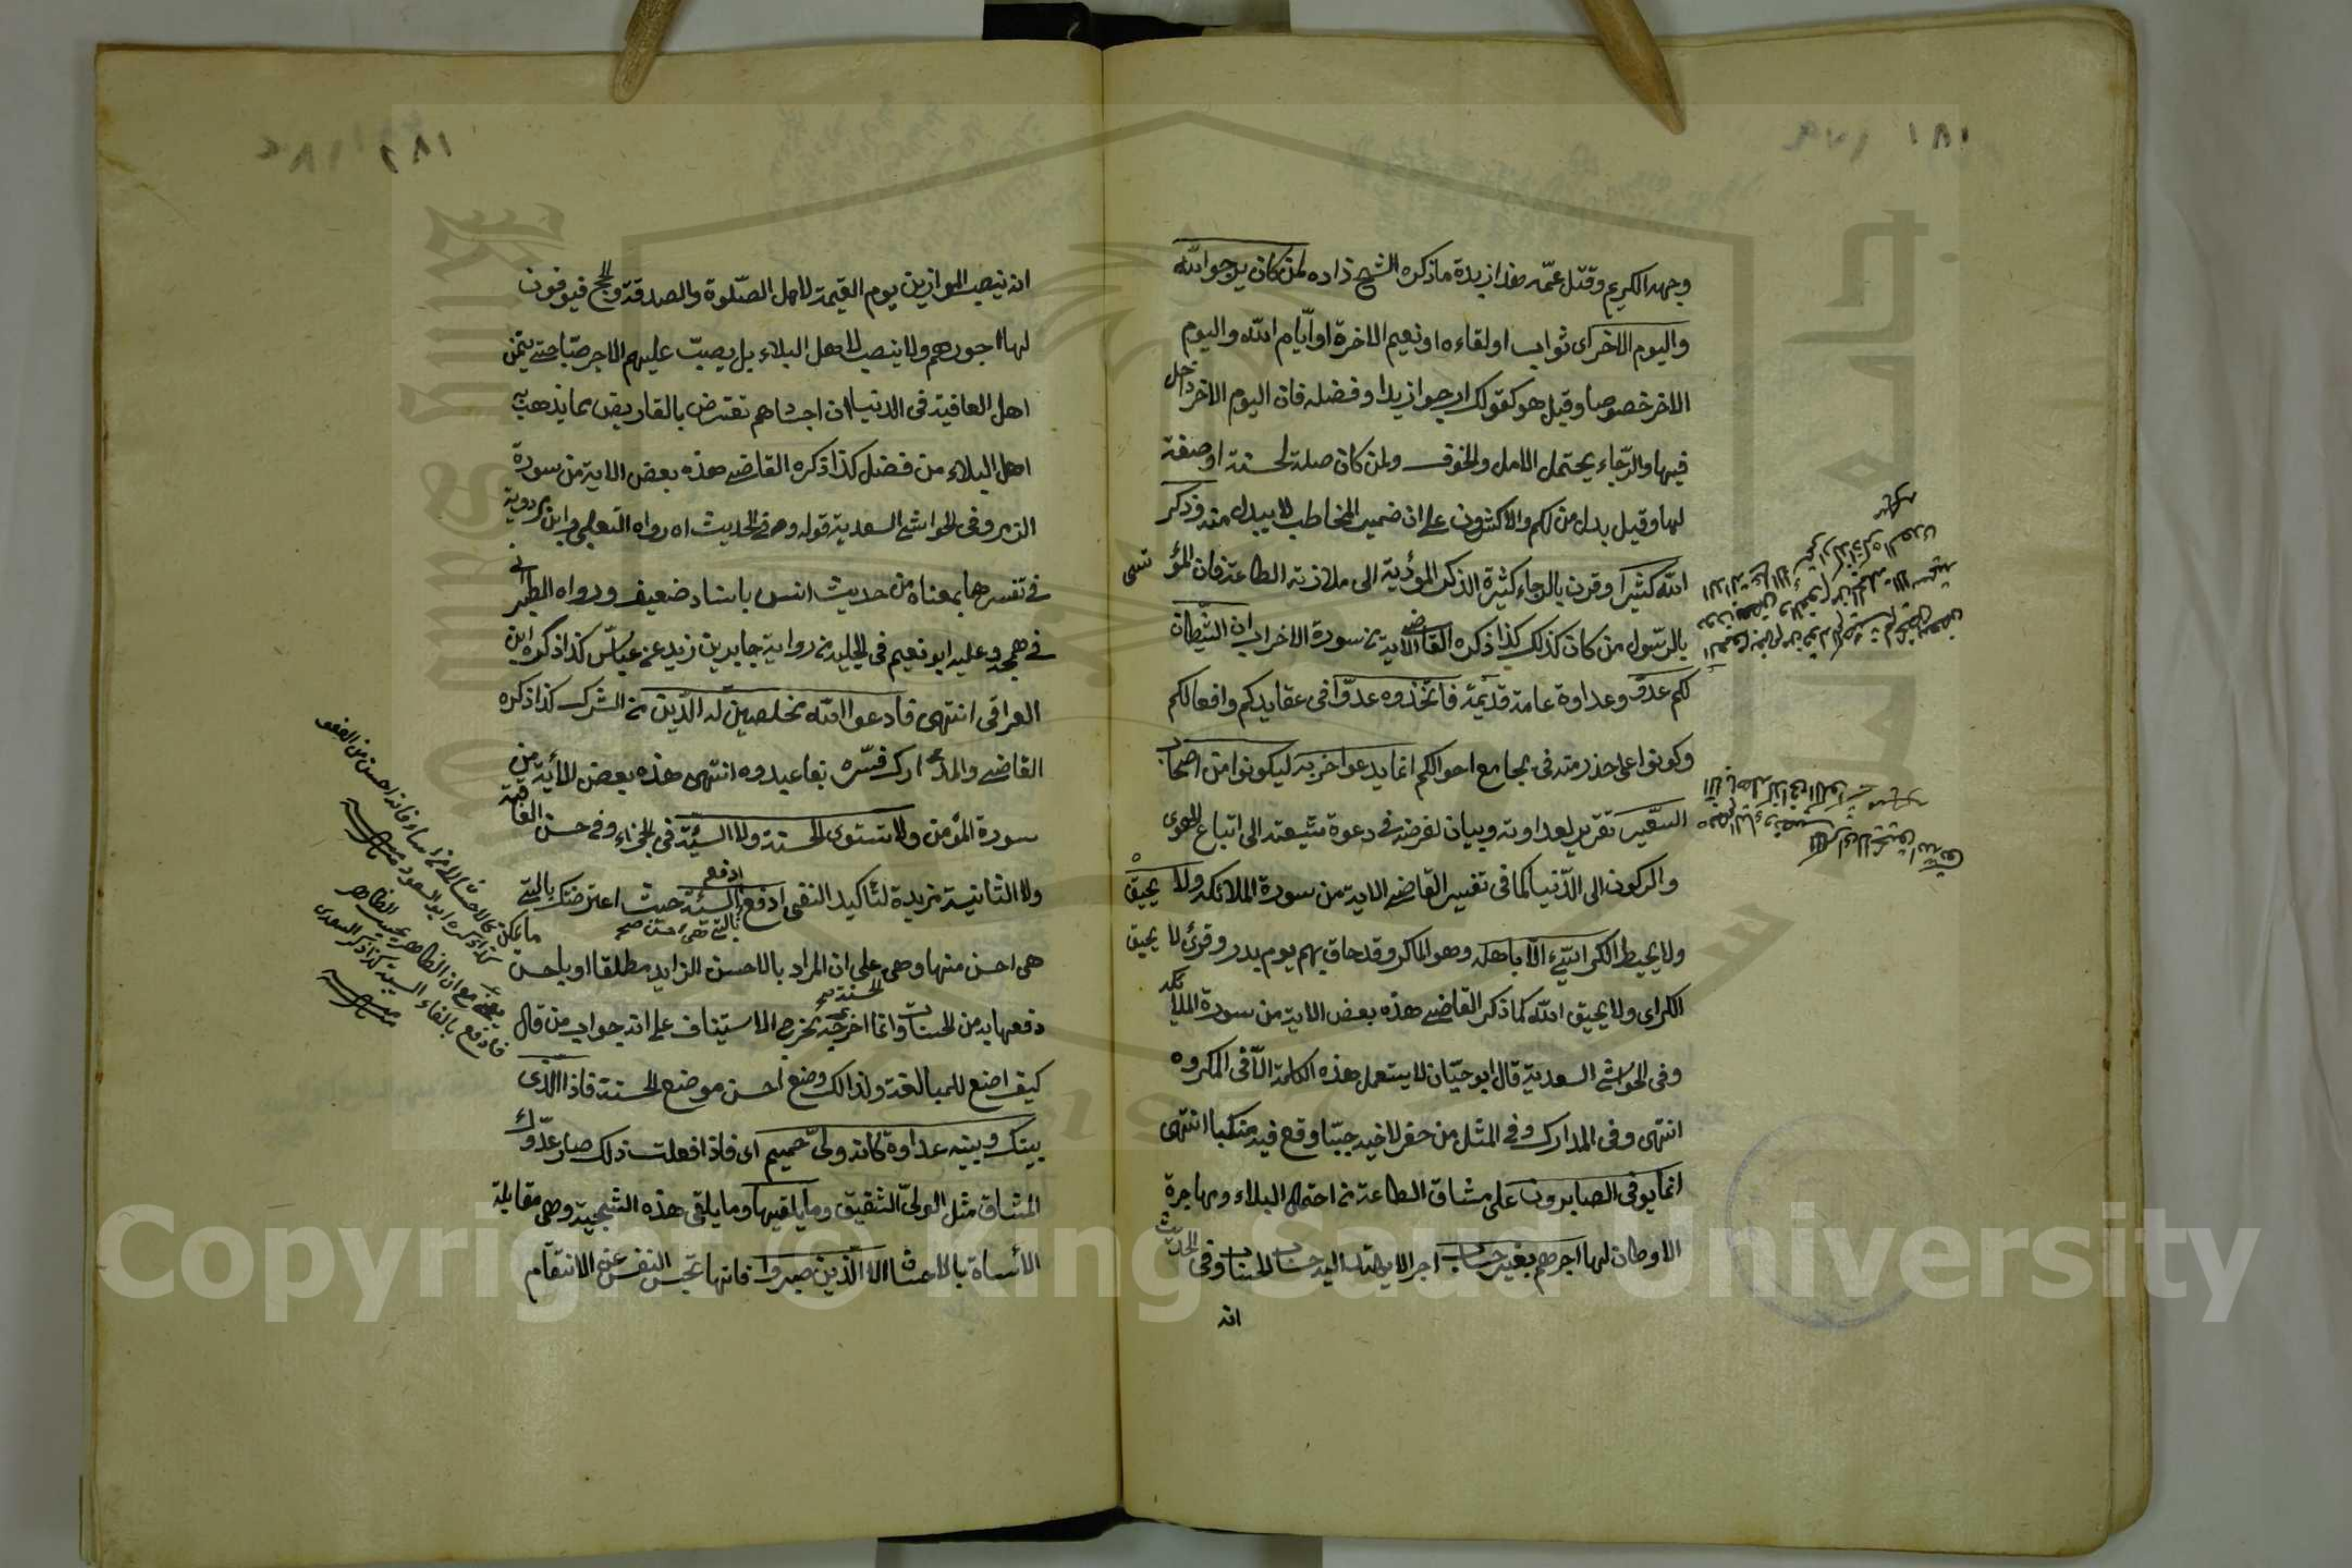 ١٨١
وجهه الكريم وقتل عمّه هذا زبدة ماذكره الشيخ زاده لمن كان يرجو الله
واليوم الاخر اى ثواب اولقاءه اونعيم الاخرة اوأيام الله واليوم
الاخر خصوصا وقيل هو كقولك ارجو ازيدا وفضله فان اليوم الاخر داخل
فيها والرّجاء يحتمل الامل والخوف ولمن كان صلة لحسنة اوصفة
لها وقيل بدل من لكم والاكثرون على ان ضمير المخاطب لا يبدل منه وذكر
الله كثيرا وقرن بالرجاء كثرة الذكر المؤدية الى ملازمة الطاعة فان المؤتسى
بالرّسول من كان كذلك كذا ذكره القاضى الاية من سورة الاحزاب ان الشيطان
لكم عدوّ وعداوة عامة قديمة فاتّخذوه عدوّا فى عقايدكم وافعالكم
وكونوا على حذر منه فى مجامع احوالكم انما يدعو احزبه ليكونوا من اصحاب
السّعير تقرير لعداوته وبيان لغرضه فى دعوة شيعته الى اتباع الهوى
والركون الى الدّنيا كما فى تفسير القاضى الاية من سورة الملائكه ولا يحيق
ولا يحيط المكر السّيّء الّا باهله وهو الماكر وقد حاق بهم يوم بدر وقرئ لا يحيق
المكر اى ولا يحيق الله كما ذكر القاضى هذه بعض الاية من سورة الملائكه
وفى الحواشى السعدية قال ابو حيّان لا يستعمل هذه الكلمة الّا فى المكروه
انتهى وفى المدارك وفى المثل من حفر لاخيه جبّا وقع فيه منكبا انتهى
انما يوفى الصابرون على مشاق الطاعة من احتمال البلاء ومهاجرة
الاوطان لها اجرهم بغير حساب اجرا لا يهتدى اليه حساب الحساب وفى الحديث
انه
١٨٢
انه ينصب الموازين يوم القيمة لاهل الصّلوة والصدقة والحج فيوفون
لها اجورهم ولا ينصب لاهل البلاء بل يصبّ عليهم الاجر صبّا حتى يتمنى
اهل العافية فى الدنيا ان اجسادهم تقترض بالقاريض بما يذهب به
اهل البلاء من فضل كذا ذكره القاضى هذه بعض الاية من سورة
الزمر وفى الحواشى السعدية قوله وفى الحديث اه رواه الثعلبى وابن مردوية
فى تفسيرهما بمعناه من حديث انس باسناد ضعيف ورواه الطبرانى
فى معجمه وعليه ابو نعيم فى الحلية من رواية جابر بن زيد عن عباس كذا ذكره ابن
العراقى انتهى فادعوا الله مخلصين له الدّين من الشرك كذا ذكره
القاضى والمدارك فسّره بفاعبدوه انتهى هذه بعض الأية من
سورة المؤمن ولا تستوى الحسنة ولا السّيّئة فى الجزاء وفى حسن العاقبة
ولا الثانية مزيدة لتأكيد النفى ادفع السيئة حيث اعترضتك بالتى
ادفع بالتى هى احسن صح
هى احسن منها وهى على ان المراد بالاحسن الزايد مطلقا او باحسن
دفعها به من الحسنات وانما اخرجه مخرج الاستيناف على انه جواب من قال
الحسنة صح
كيف اصنع للمبالغة ولذالك وضع احسن موضع الحسنة فاذا الذى
بينك وبينه عداوة كانه ولىّ حميم اى فاذا فعلت ذلك صار عدوّك
المشاق مثل الولىّ الشفيق وما يلقيها وما يلقى هذه الشجية وهى مقابلة
الأساة بالاحسان الا الّذين صبروا فانها تحبس النفس عن الانتقام
ما يمكن
كذا ذكره ابو السعود
فادفع بالفاء السببية كذا ذكر السعدى
Copyright © King Saud University